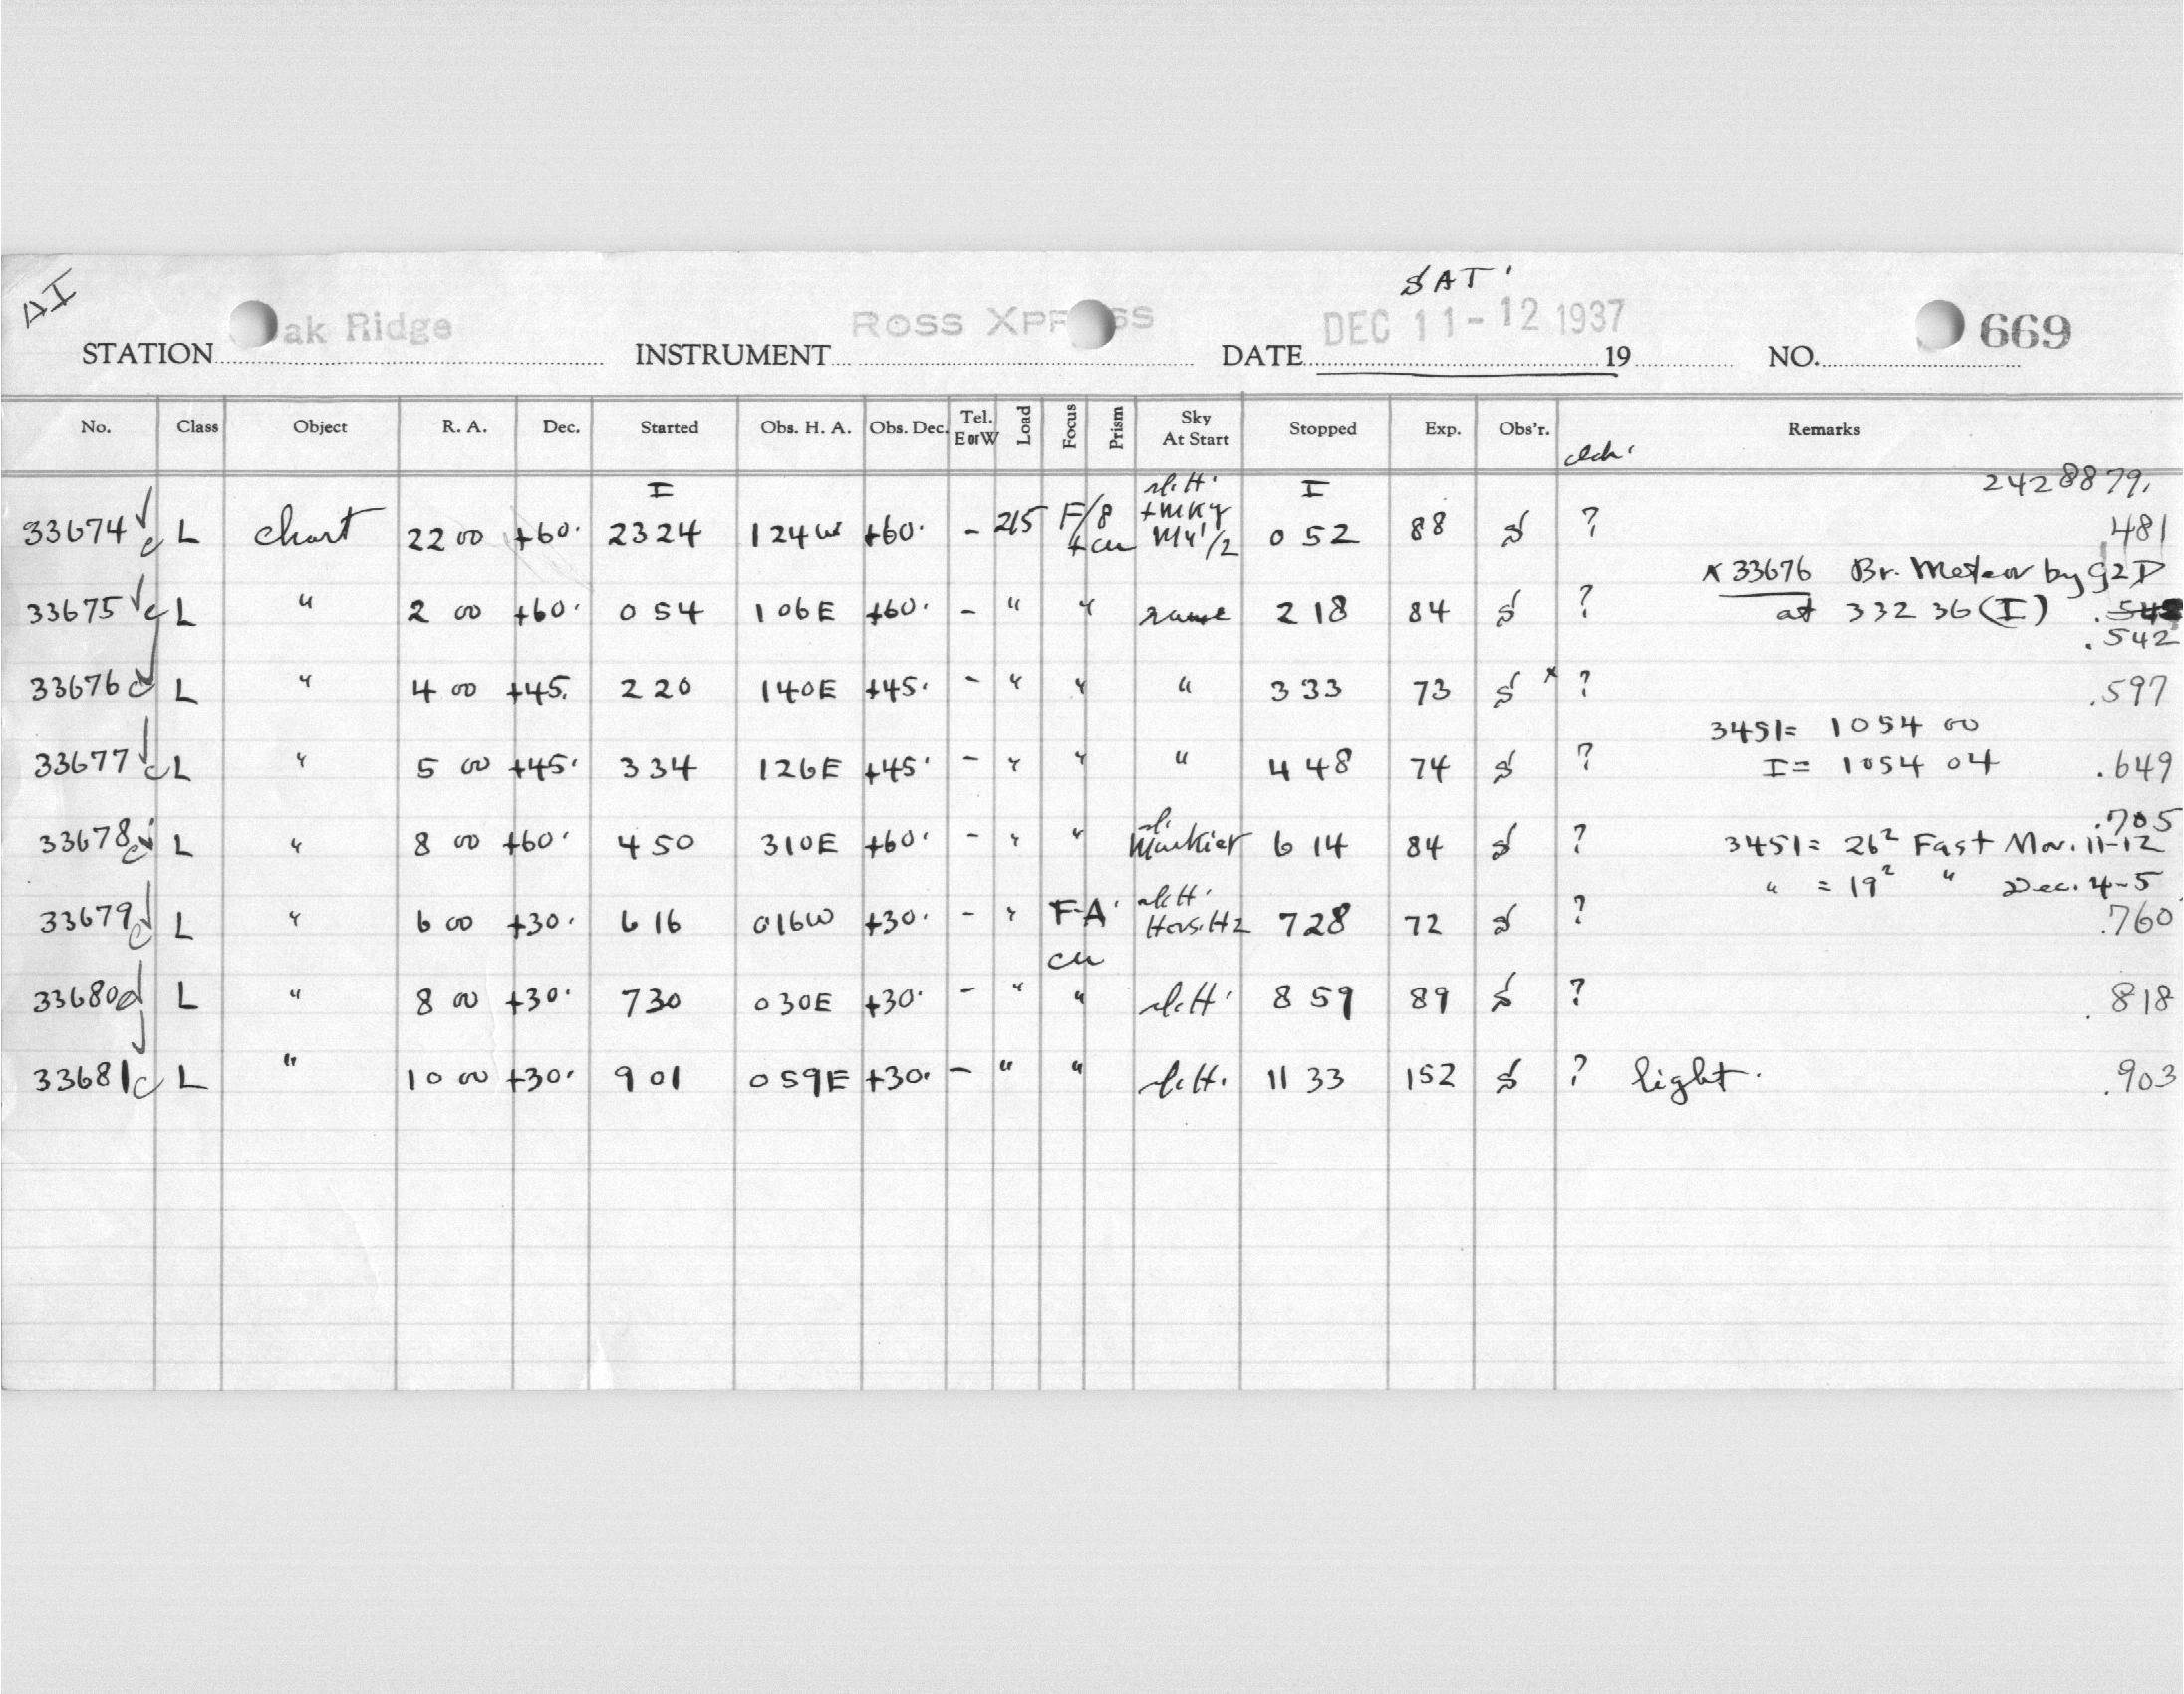 AI
SAT.
STATION ak Ridge INSTRUMENT ROSS XPR SS DATE DEC 11-12 1937 19 NO. 669
No. Class Object R. A. Dec. Started Obs. H. A. Obs. Dec. Tel. E or W Load Focus Prism Sky At Start Stopped Exp. Obs'r. Remarks
I I 2428879.
33674 c L chart 22 00 +60. 23 24 1 24 W +60. - 215 F/8 0 52 88 S ? 481
* 33676 Br. Meteor by g2D
33675 c L " 2 00 +60. 0 54 1 06 E +60. - " " same 2 18 84 S ? at 3 32 36 (I)
.542
33676 c L " 4 00 +45. 2 20 1 40 E +45. - " " " 3 33 73 S * ? .597
3451= 10 54 00
33677 c L " 5 00 +45. 3 34 1 26 E +45. - " " " 4 48 74 S ? I= 10 54 04 .649
.705
33678 c L " 8 00 +60. 4 50 3 10 E +60. - " " sl. Murkier 6 14 84 S ? 3451= 26² Fast Nov. 11-12
" = 19² " Dec. 4-5
33679 c L " 6 00 +30. 6 16 0 16 W +30. - " F-A. 7 28 72 S ? .760
33680 c L " 8 00 +30. 7 30 0 30 E +30. - " " sl. H. 8 59 89 S ? .818
33681 c L " 10 00 +30. 9 01 0 59 E +30. - " " sl. H. 11 33 152 S ? light. .903